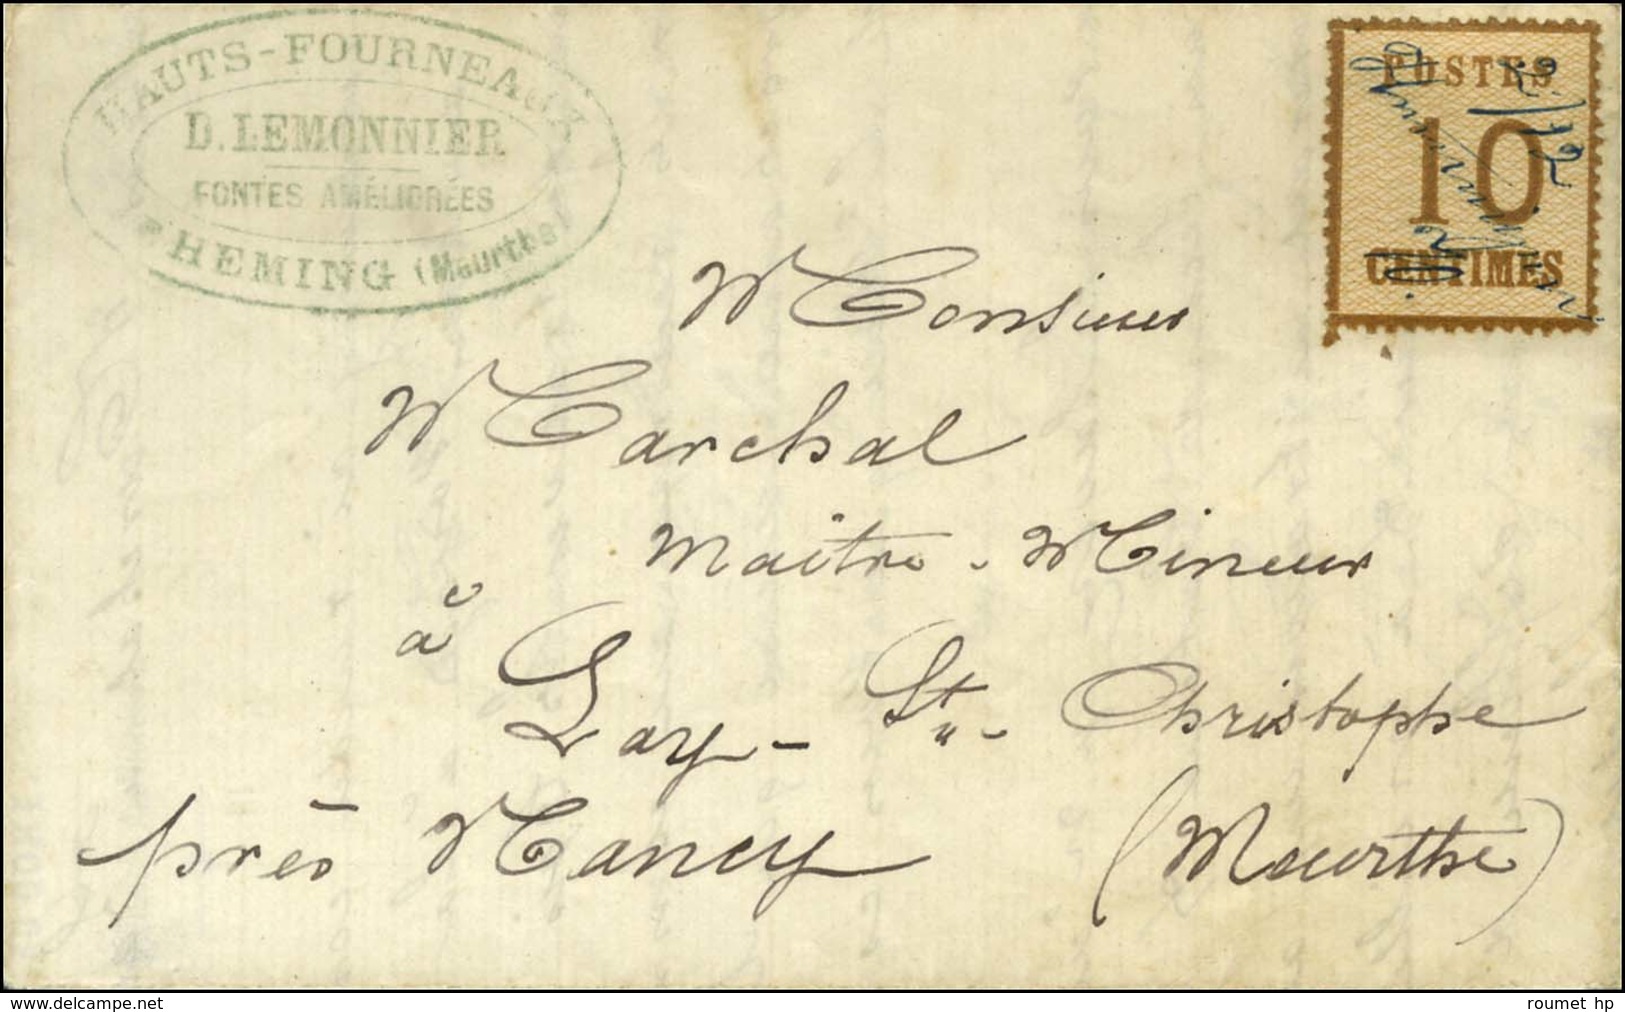 HAUTS-FOURNEAUX
D. LEMONNIER
FONTES AMÉLIORÉES
HEMING (Meurthe)
POSTES
10
CENTIMES
Monsieur
Marchal
Maître-Mineur
à
Lay-St-Christophe
près Nancy (Meurthe)
www.delcampe.net
roumet hp